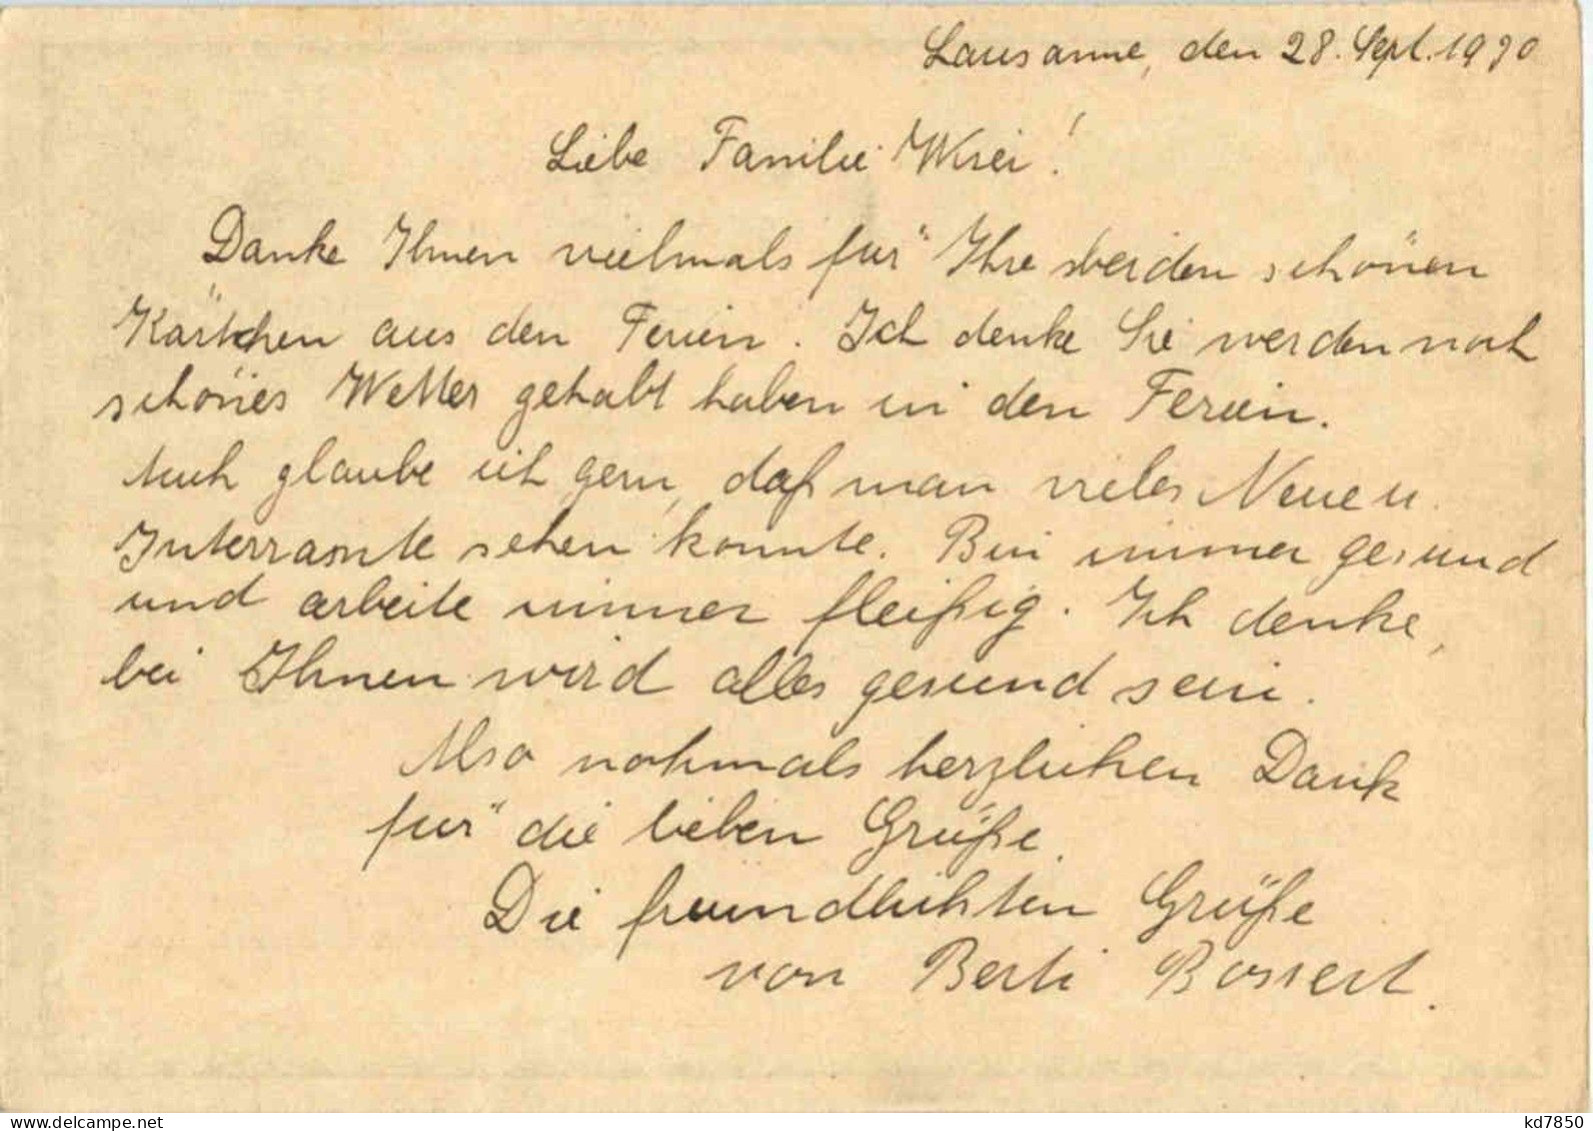 Lausanne, den 28. Sept. 1930
Liebe Familie !
Danke Ihnen vielmals für Ihre beiden schönen
Kärtchen aus den Ferien. Ich denke Sie werden noch
schönes Wetter gehabt haben in den Ferien.
Auch glaube ich gern, daß man vieles Neue u.
Interrante sehen konnte. Bin immer gesund
und arbeite immer fleißig. Ich denke,
bei Ihnen wird alles gesund sein.
Also nohmals herzlichen Dank
für die lieben Grüße.
Die freundlichten Grüße
von Berti Bossert.
kd7850